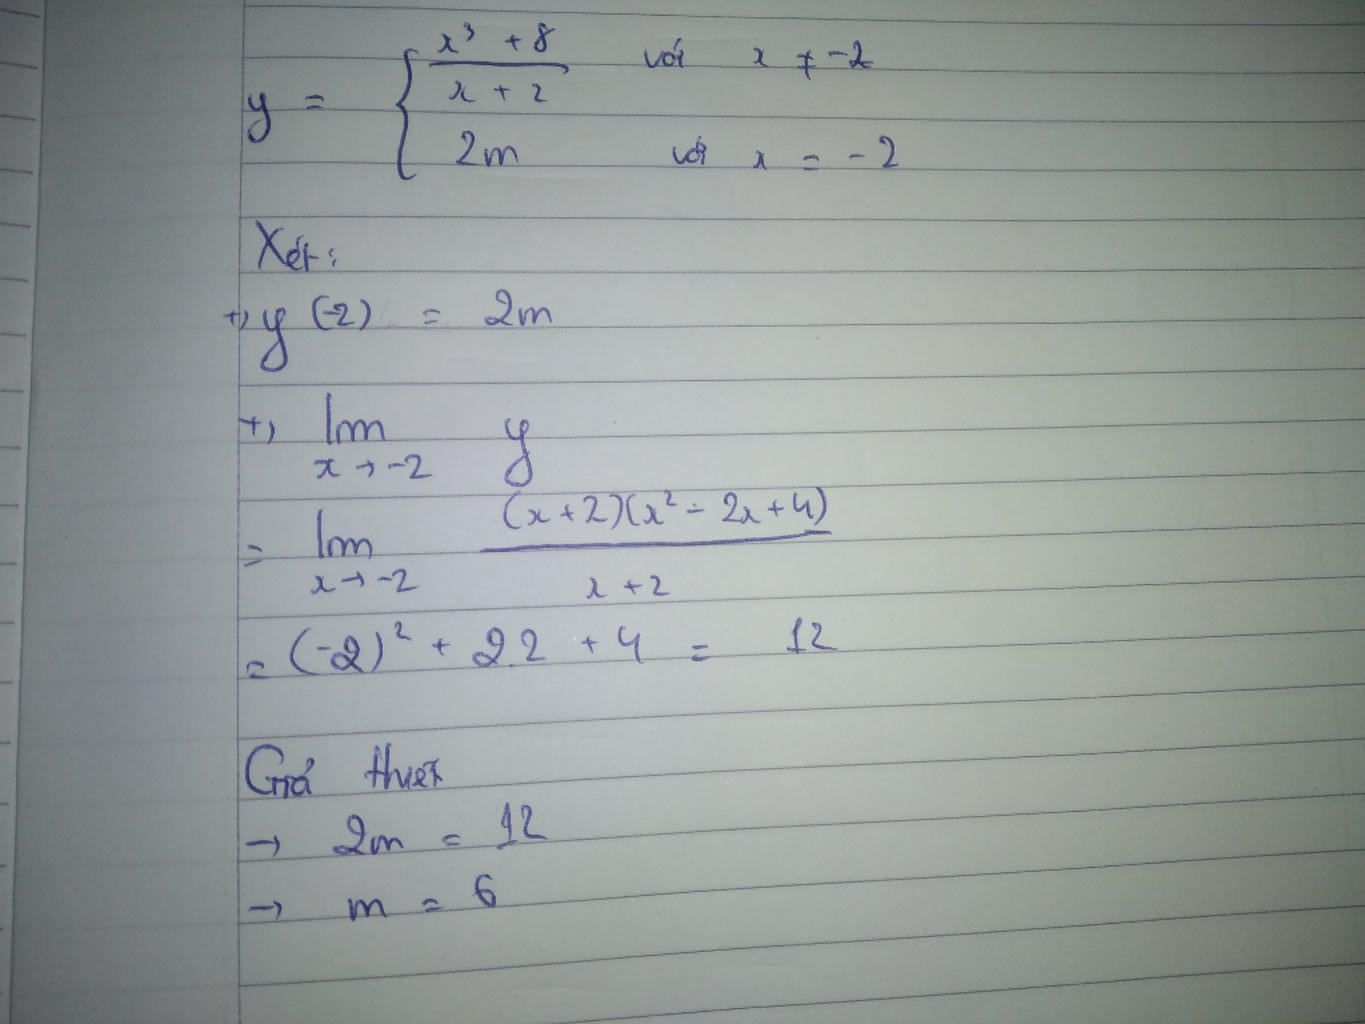 y = { x³ + 8 / x + 2 với x ≠ -2
2m với x = -2
Xét:
+) y (-2) = 2m
+) lim x → -2 y
= lim x → -2 (x + 2)(x² - 2x + 4) / x + 2
= (-2)² + 2.2 + 4 = 12
Giả thiết
→ 2m = 12
→ m = 6